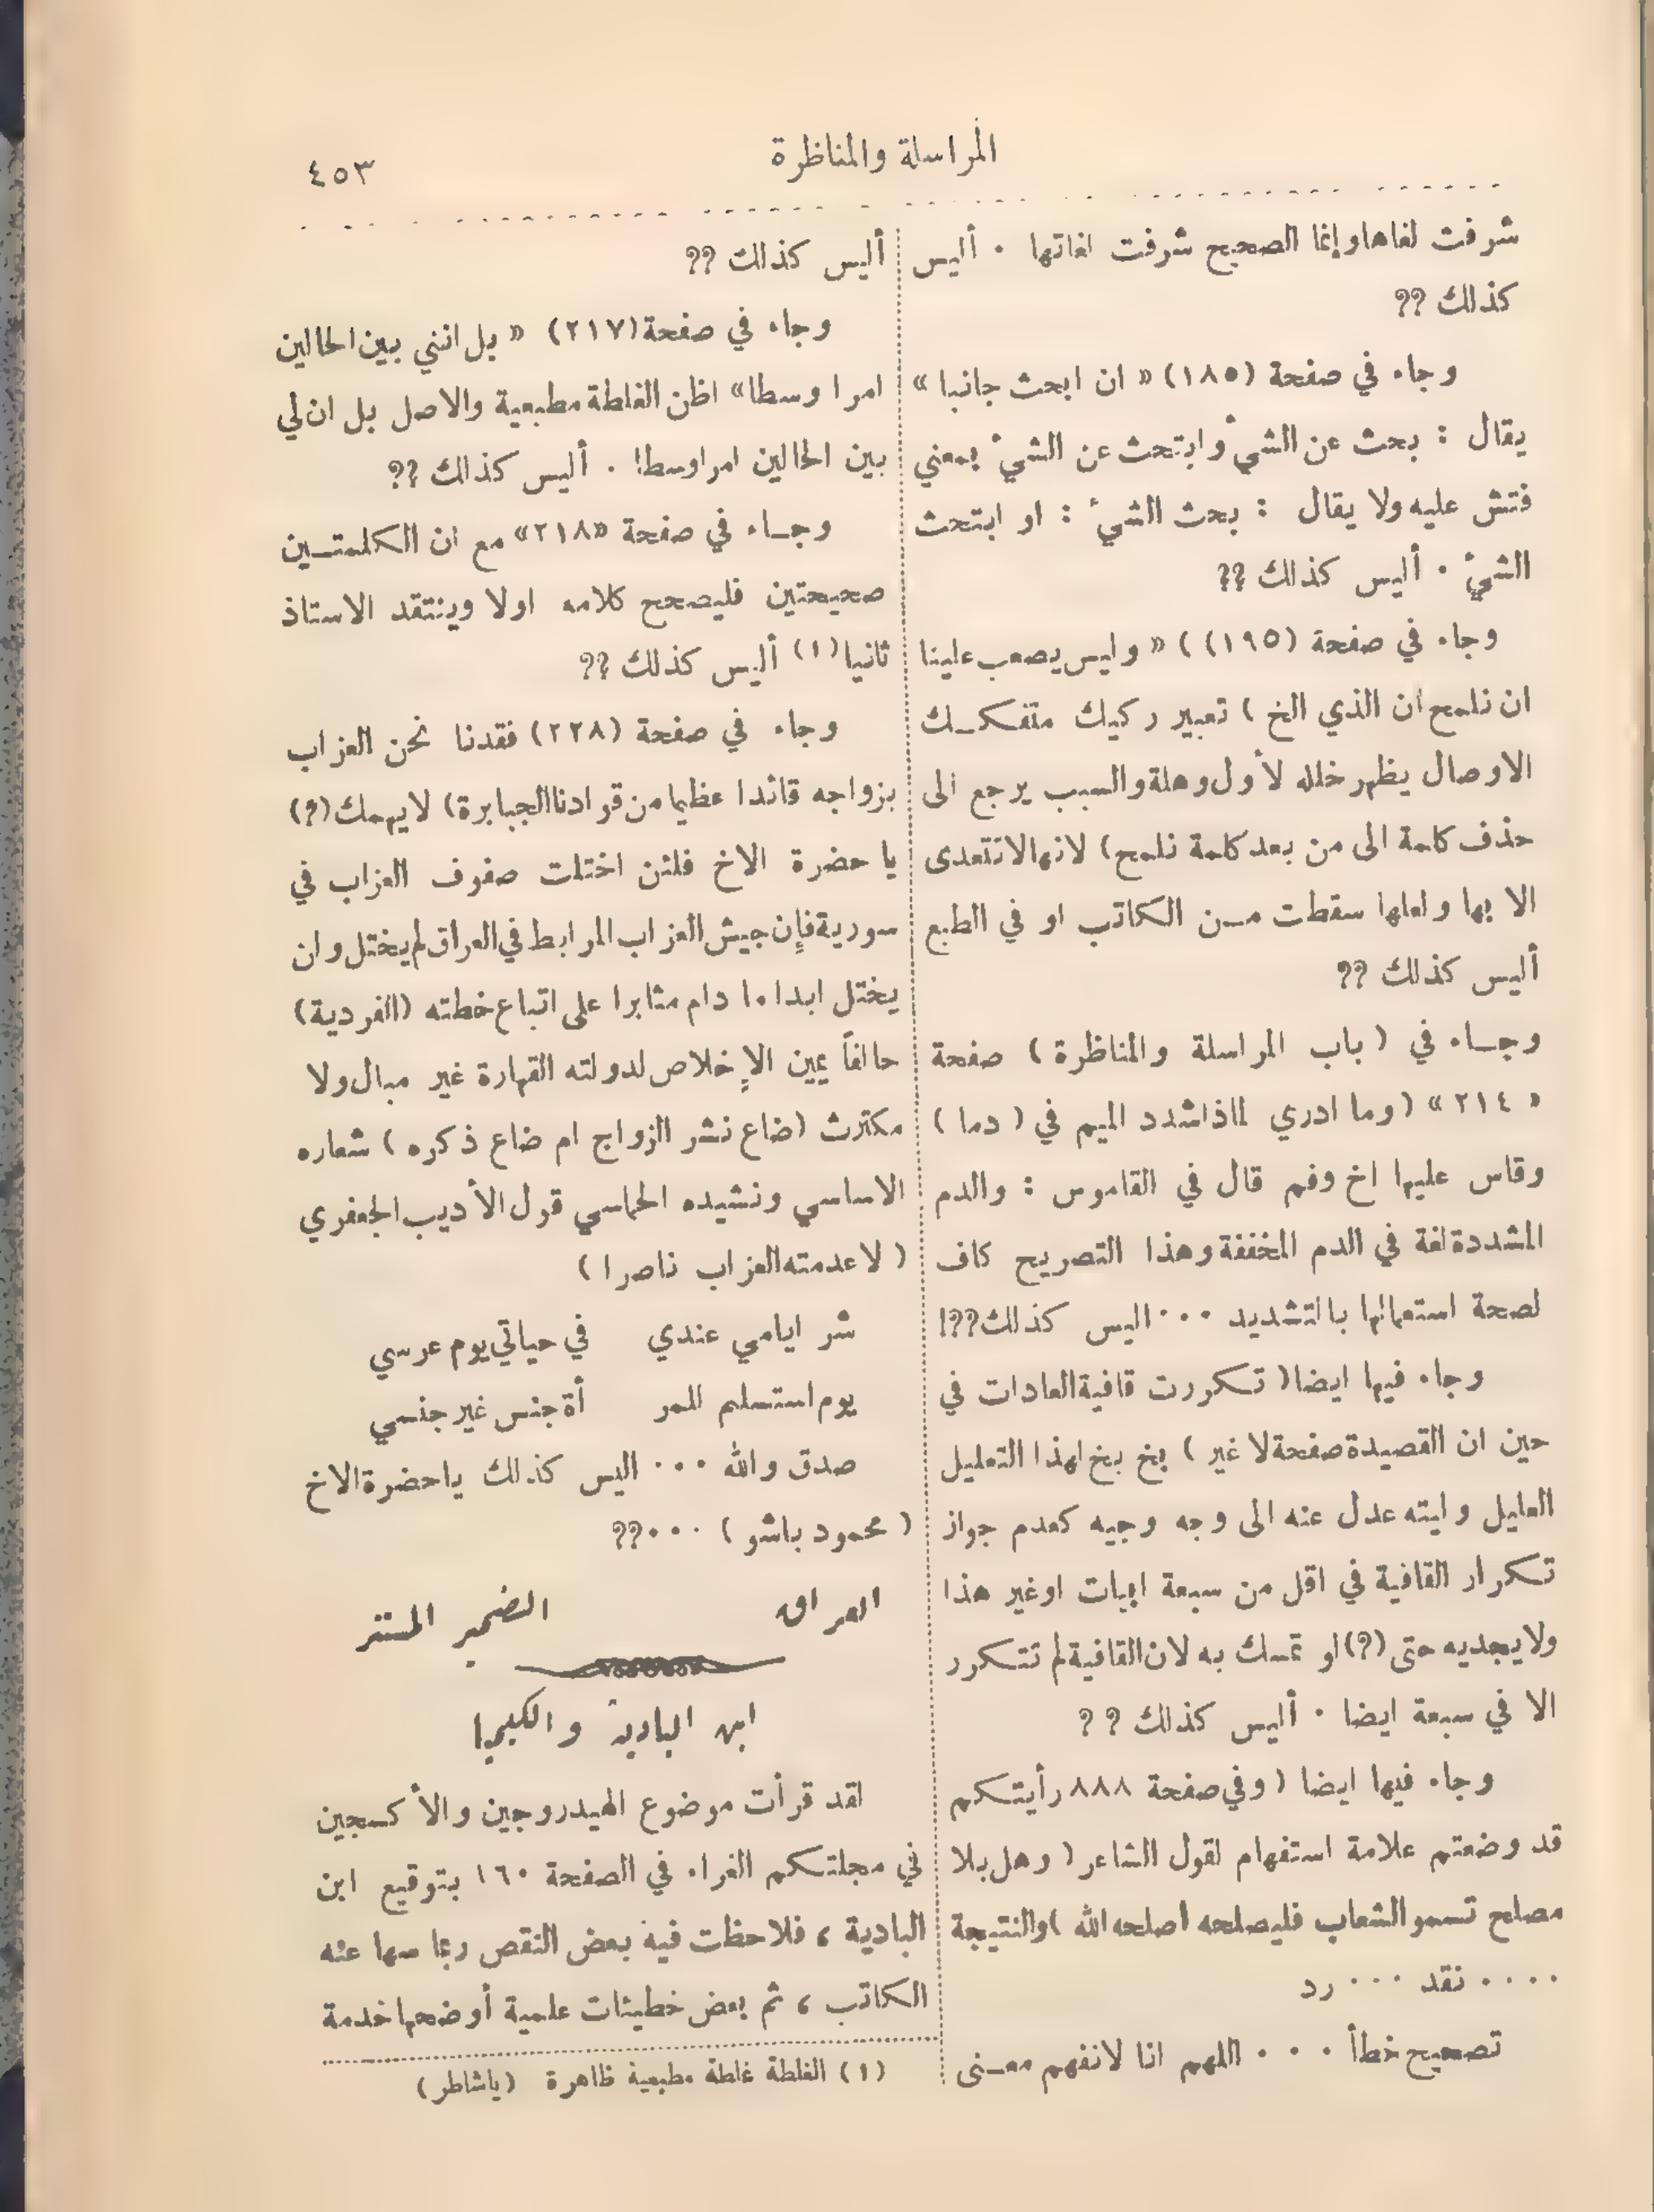 المراسلة والمناظرة
٤٥٣
شرفت لغاها وإنما الصحيح شرفت لغاتها · أليس
كذلك ??
وجاء في صفحة (١٨٥) « ان ابحث جانبا »
يقال : بحث عن الشيء وابتحث عن الشيء بمعنى
فتش عليه ولا يقال : بحث الشيء : او ابتحث
الشيء · أليس كذلك ??
وجاء في صفحة (١٩٥) ( « وليس يصعب علينا
ان نلمح ان الذي الخ ) تعبير ركيك متفكك
الاوصال يظهر خلله لأول وهلة والسبب يرجع الى
حذف كلمة الى من بعد كلمة نلمح ) لانها لا تتعدى
الا بها ولعلها سقطت من الكاتب او في الطبع
أليس كذلك ??
وجاء في ( باب المراسلة والمناظرة ) صفحة
« ٢١٤ » ( وما ادري لماذا شدد الميم في ( دما )
وقاس عليها اخ وفم قال في القاموس : والدم
المشددة لغة في الدم المخففة وهذا التصريح كاف
لصحة استعمالها بالتشديد ··· اليس كذلك??!
وجاء فيها ايضا ( تكررت قافية العادات في
حين ان القصيدة صفحة لا غير ) بخ بخ لهذا التعليل
العليل وليته عدل عنه الى وجه وجيه كعدم جواز
تكرار القافية في اقل من سبعة ابيات او غير هذا
ولا يجديه حتى (?) لو تمسك به لان القافية لم تتكرر
الا في سبعة ايضا · أليس كذلك ? ?
وجاء فيها ايضا ( وفي صفحة ٨٨٨ رأيتكم
قد وضعتم علامة استفهام لقول الشاعر ( وهل بلا
مصلح تسمو الشعاب فليصلحه أصلحه الله ) والنتيجة
···· نقد ··· رد
تصحيح خطأ ··· اللهم انا لا نفهم معنى
أليس كذلك ??
وجاء في صفحة (٢١٧) « بل انني بين الحالين
امرا وسطا» اظن الغلطة مطبعية والاصل بل ان لي
بين الحالين امرا وسطا · أليس كذلك ??
وجاء في صفحة «٢١٨» مع ان الكلمتين
صحيحتين فليصحح كلامه اولا وينتقد الاستاذ
ثانيا (١) أليس كذلك ??
وجاء في صفحة (٢٢٨) فقدنا نحن العزاب
بزواجه قائدا عظيما من قوادنا الجبابرة) لا يهمك (?)
يا حضرة الاخ فلئن اختلت صفوف العزاب في
سورية فإن جيش العزاب المرابط في العراق لم يختل ولن
يختل ابدا ما دام مثابرا على اتباع خطته (الفردية)
حالفاً يمين الإخلاص لدولته القهارة غير مبال ولا
مكترث (ضاع نشر الزواج ام ضاع ذكره ) شعاره
الاساسي ونشيده الحماسي قول الأديب الجعفري
( لا عدمته العزاب ناصرا )
شر ايامي عندي في حياتي يوم عرسي
يوم استسلم للمر أة جنس غير جنسي
صدق والله ··· اليس كذلك يا حضرة الاخ
( محمود باشو ) ···??
العراق الضمير المستتر
ابن البادية والكيميا
لقد قرأت موضوع الهيدروجين والأكسجين
في مجلتكم الغراء في الصفحة ١٦٠ بتوقيع ابن
البادية ، فلاحظت فيه بعض النقص ربما سها عنه
الكاتب ، ثم بعض خطيئات علمية أوضحها خدمة
(١) الغلطة غلطة مطبعية ظاهرة (ياشاطر)